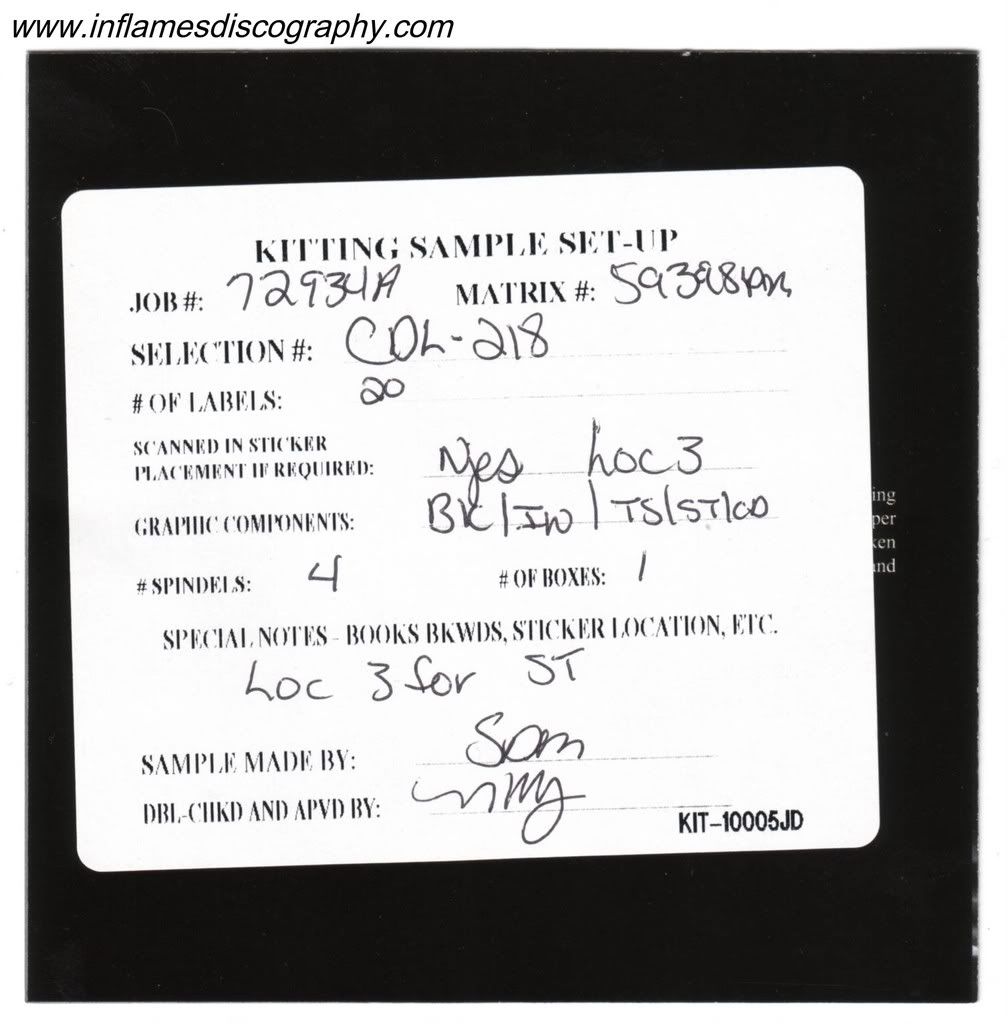 www.inflamesdiscography.com
KITTING SAMPLE SET-UP
JOB #: 72934A MATRIX #:
SELECTION #: CDL-218
# OF LABELS: 20
SCANNED IN STICKER
PLACEMENT IF REQUIRED: yes Loc 3
GRAPHIC COMPONENTS: BK/IW/TS/ST/CD
# SPINDELS: 4 # OF BOXES: 1
SPECIAL NOTES - BOOKS BKWDS, STICKER LOCATION, ETC.
Loc 3 for ST
SAMPLE MADE BY: Sam
DBL-CHKD AND APVD BY:
KIT-10005JD
ing
per
ken
and